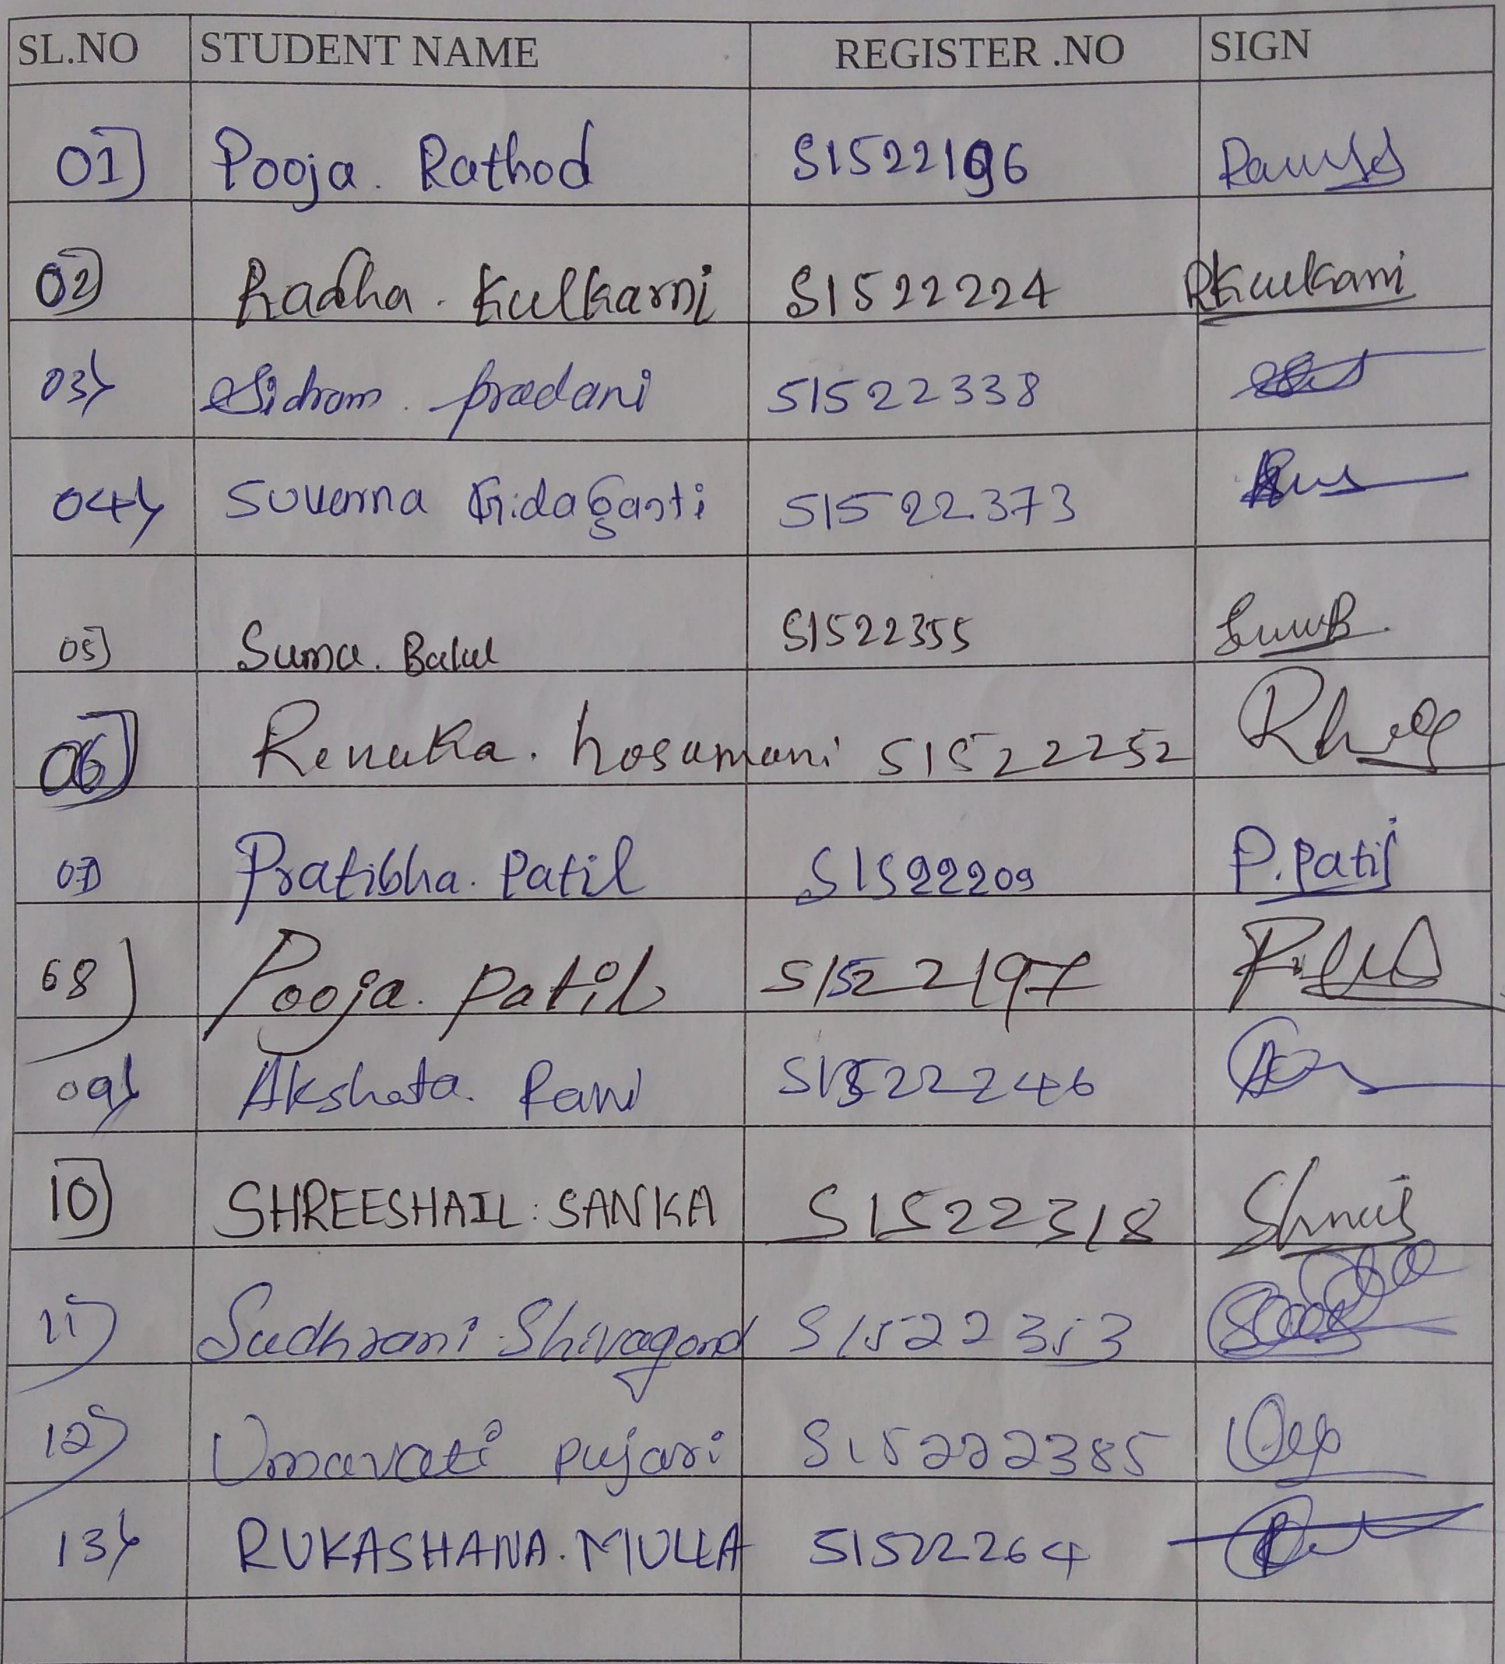 SL.NO STUDENT NAME REGISTER .NO SIGN
01) Pooja. Rathod S1522196
02) Radha. Kulkarni S1522224 RKulkarni
03) Sidram. pradani S1522338
04) Suvarna Gidaganti S1522373
05) Suma. Balul S1522355 SumB.
06) Renuka. hosamani S1522252
07) Pratibha. Patil S1522209 P.Patil
08) Pooja. patil S1522197
09) Akshata. S1522246
10) SHREESHAIL. SANKA S1522318
11) Sudharani. Shivagond S1522353
12) Umavati pujari S1522385
13) RUKASHANA. MULLA S1522264